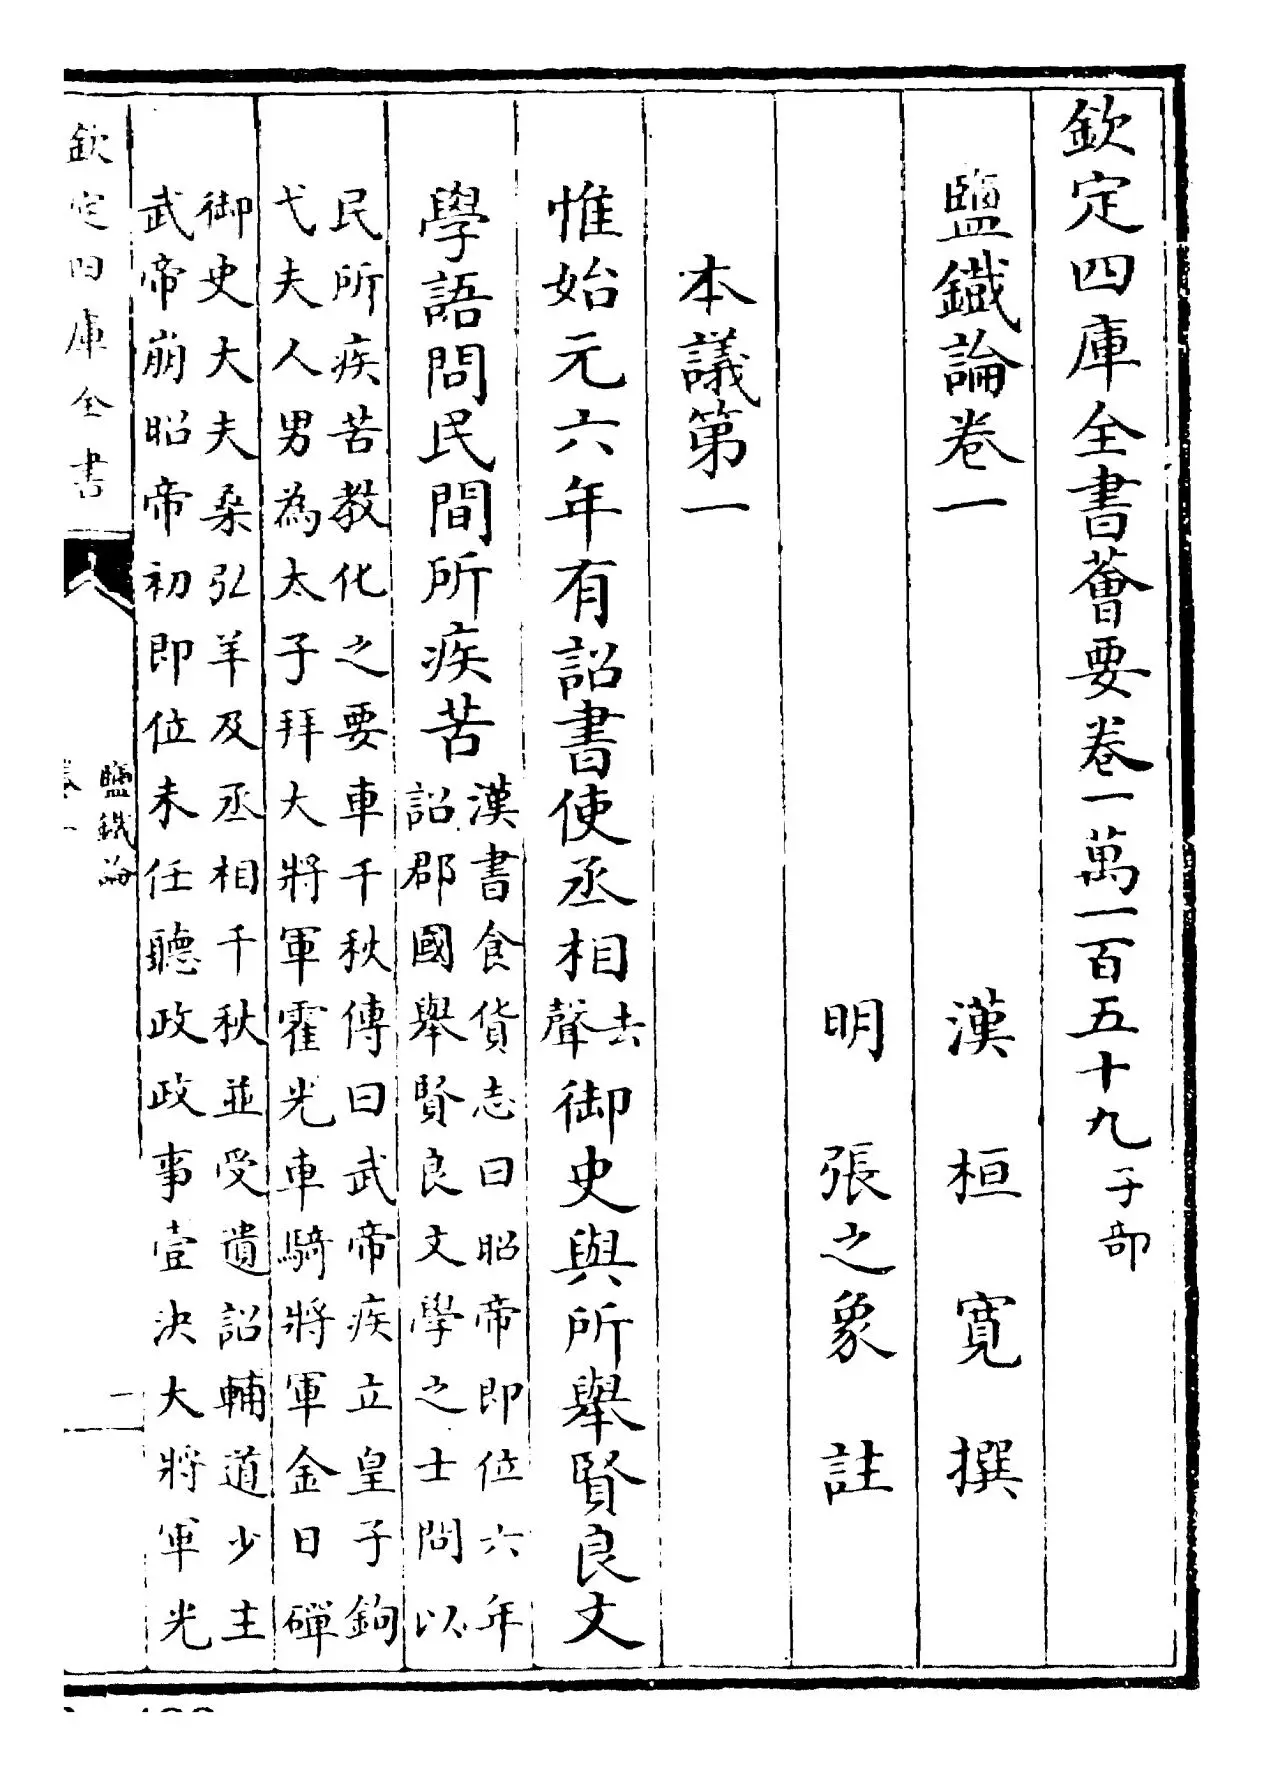 欽定四庫全書薈要卷一萬一百五十九子部
鹽鐵論卷一
漢桓寬撰
明張之象註
本議第一
惟始元六年有詔書使丞相去聲御史與所舉賢良文
學語問民間所疾苦漢書食貨志曰昭帝即位六年
詔郡國舉賢良文學之士問以
民所疾苦教化之要車千秋傳曰武帝疾立皇子鉤
弋夫人男為太子拜大將軍霍光車騎將軍金日磾
御史大夫桑弘羊及丞相千秋並受遺詔輔道少主
武帝崩昭帝初即位未任聽政政事壹決大將軍光
欽定四庫全書
鹽鐵論
卷一
一